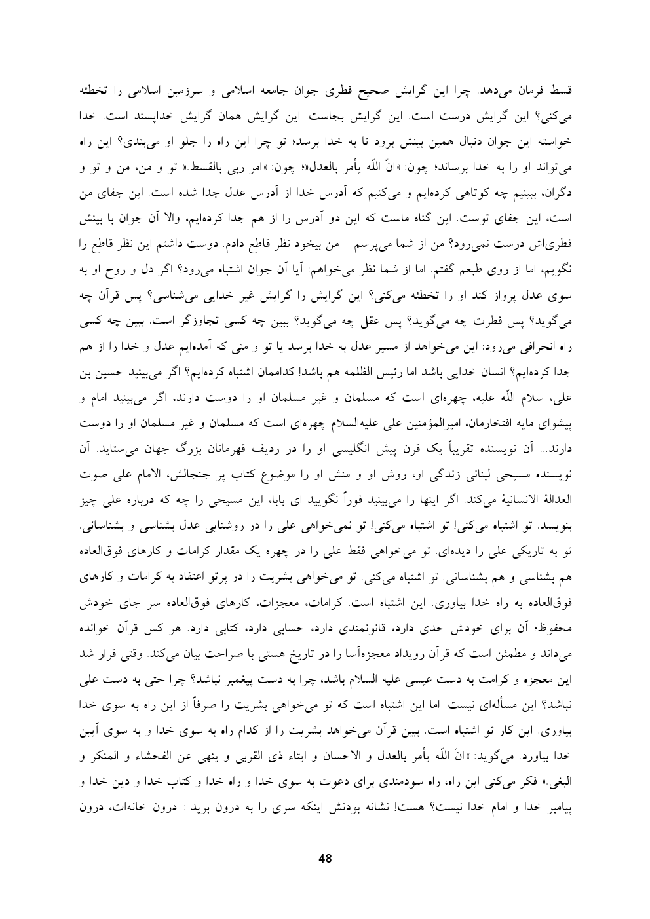 قسط فرمان می‌دهد. چرا این گرایش صحیح فطری جوان جامعه اسلامی و سرزمین اسلامی را تخطئه
می‌کنی؟ این گرایش درست است. این گرایش بجاست. این گرایش همان گرایش خداپسند است. خدا
خواسته این جوان دنبال همین بینش برود تا به خدا برسد؛ تو چرا این راه را جلو او می‌بندی؟ این راه
می‌تواند او را به خدا برساند؛ چون: «انّ اللّه یأمر بالعدل»؛ چون: «امر ربی بالقسط.» تو و من، من و تو و
دگران، ببینیم چه کوتاهی کرده‌ایم و می‌کنیم که آدرس خدا از آدرس عدل جدا شده است. این جفای من
است، این جفای توست. این گناه ماست که این دو آدرس را از هم جدا کرده‌ایم، والا آن جوان با بینش
فطری‌اش درست نمی‌رود؟ من از شما می‌پرسم - من بیخود نظر قاطع دادم. دوست داشتم این نظر قاطع را
نگویم، اما از روی طبعم گفتم. اما از شما نظر می‌خواهم: آیا آن جوان اشتباه می‌رود؟ اگر دل و روح او به
سوی عدل پرواز کند او را تخطئه می‌کنی؟ این گرایش را گرایش غیر خدایی می‌شناسی؟ پس قرآن چه
می‌گوید؟ پس فطرت چه می‌گوید؟ پس عقل چه می‌گوید؟ ببین چه کسی تجاوزگر است. ببین چه کسی
راه انحرافی می‌رود: این می‌خواهد از مسیر عدل به خدا برسد یا تو و منی که آمده‌ایم عدل و خدا را از هم
جدا کرده‌ایم؟ انسان خدایی باشد اما رئیس الظلمه هم باشد! کداممان اشتباه کرده‌ایم؟ اگر می‌بینید حسین بن
علی، سلام اللّه علیه، چهره‌ای است که مسلمان و غیر مسلمان او را دوست دارند، اگر می‌بینید امام و
پیشوای مایه افتخارمان، امیرالمؤمنین علی علیه‌السلام چهره‌ای است که مسلمان و غیر مسلمان او را دوست
دارند... آن نویسنده تقریباً یک قرن پیش انگلیسی او را در ردیف قهرمانان بزرگ جهان می‌ستاید. آن
نویسنده مسیحی لبنانی زندگی او، روش او و منش او را موضوع کتاب پر جنجالش، الامام علی صوت
العدالة الانسانیة می‌کند. اگر اینها را می‌بینید فوراً نگویید ای بابا، این مسیحی را چه که درباره علی چیز
بنویسد. تو اشتباه می‌کنی! تو اشتباه می‌کنی! تو نمی‌خواهی علی را در روشنایی عدل بشناسی و بشناسانی.
تو به تاریکی علی را دیده‌ای. تو می‌خواهی فقط علی را در چهره یک مقدار کرامات و کارهای فوق‌العاده
هم بشناسی و هم بشناسانی. تو اشتباه می‌کنی. تو می‌خواهی بشریت را در پرتو اعتقاد به کرامات و کارهای
فوق‌العاده به راه خدا بیاوری. این اشتباه است. کرامات، معجزات، کارهای فوق‌العاده سر جای خودش
محفوظ؛ آن برای خودش حدی دارد، قانونمندی دارد، حسابی دارد، کتابی دارد. هر کس قرآن خوانده
می‌داند و مطمئن است که قرآن رویداد معجزه‌آسا را در تاریخ هستی با صراحت بیان می‌کند. وقتی قرار شد
این معجزه و کرامت به دست عیسی علیه السلام باشد، چرا به دست پیغمبر نباشد؟ چرا حتی به دست علی
نباشد؟ این مسأله‌ای نیست. اما این اشتباه است که تو می‌خواهی بشریت را صرفاً از این راه به سوی خدا
بیاوری. این کار تو اشتباه است. ببین قرآن می‌خواهد بشریت را از کدام راه به سوی خدا و به سوی آیین
خدا بیاورد. می‌گوید: «انّ اللّه یأمر بالعدل و الاحسان و ایتاء ذی القربی و ینهی عن الفحشاء و المنکر و
البغی.» فکر می‌کنی این راه، راه سودمندی برای دعوت به سوی خدا و راه خدا و کتاب خدا و دین خدا و
پیامبر خدا و امام خدا نیست؟ هست! نشانه بودنش اینکه سری را به درون برید : درون خانه‌ات، درون
48